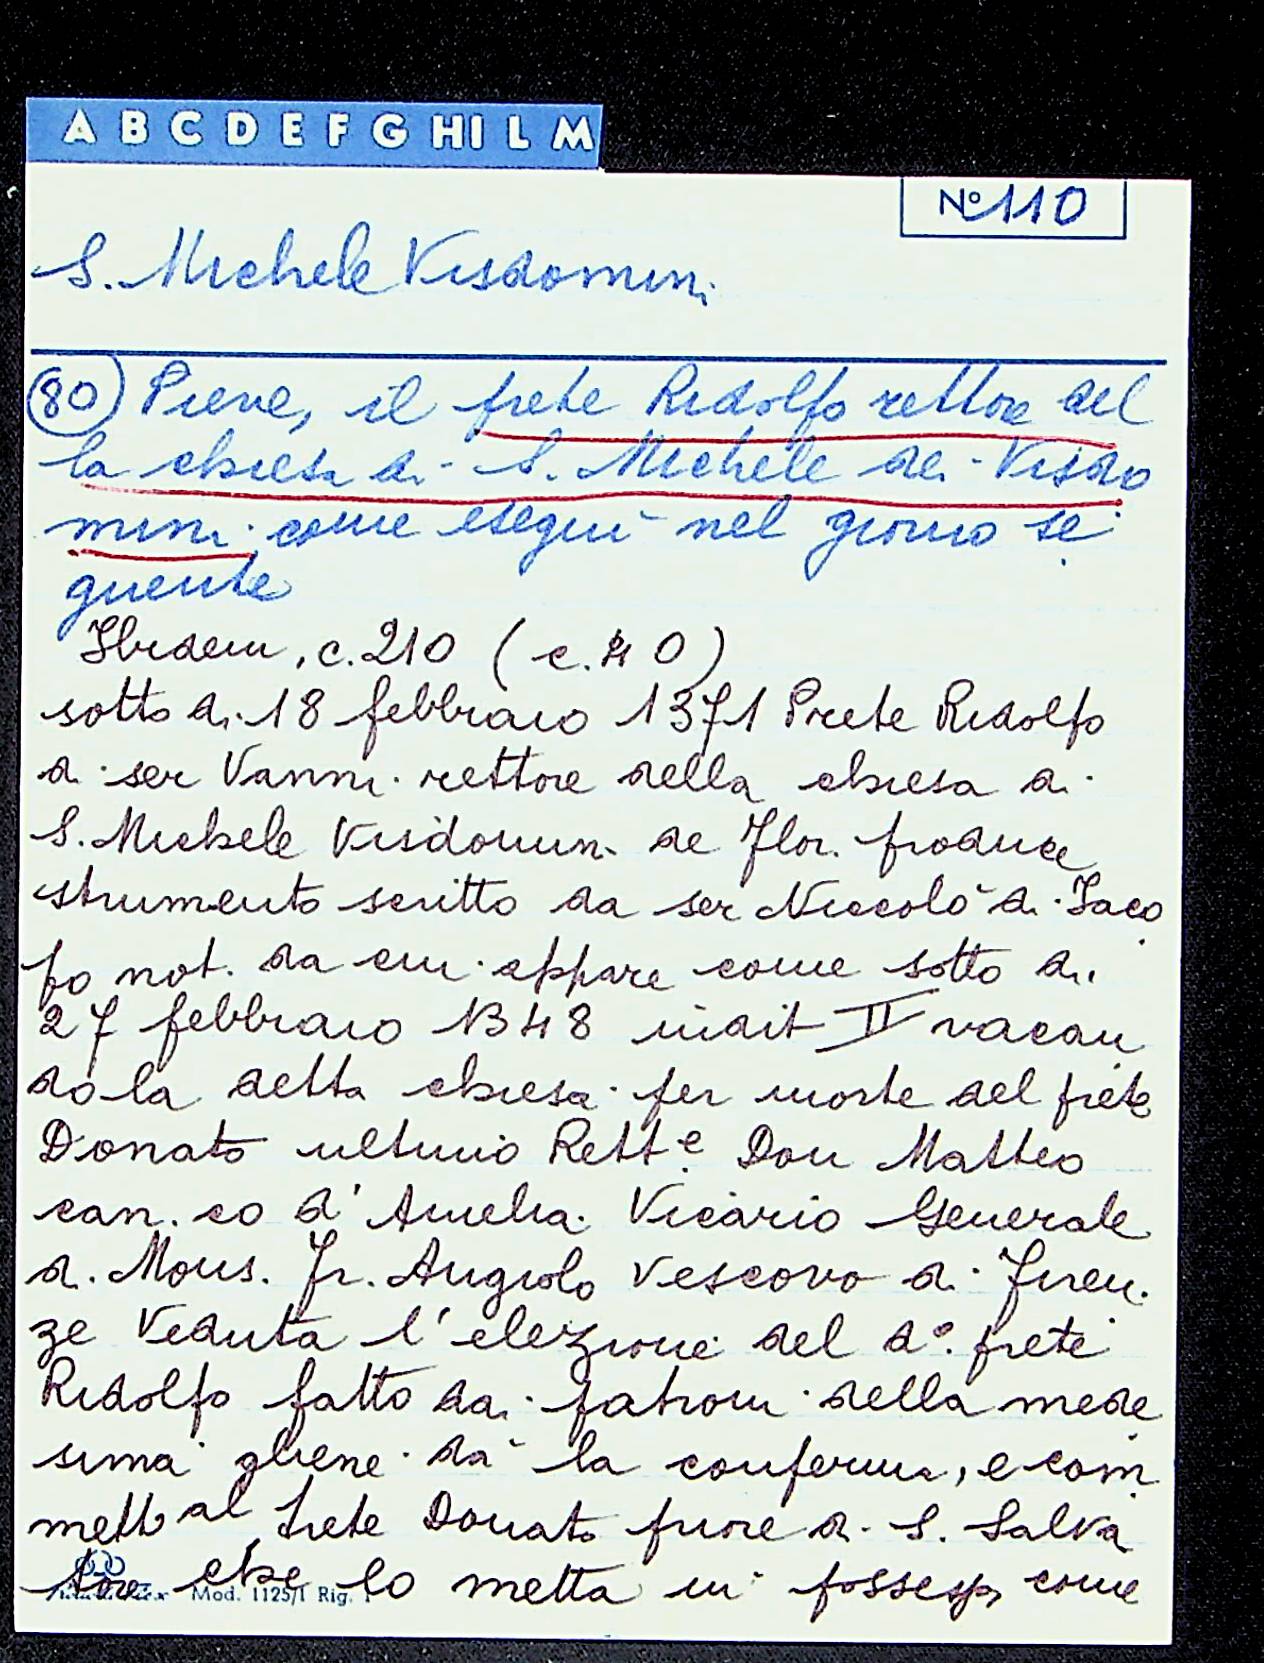 A B C D E F G HI L M
N° 110
S. Michele Visdomini
80) Pieve, il prete Ridolfo rettore del
la chiesa di S. Michele dei Visdo
mini come eseguì nel giorno se
guente
Ibidem, c. 210 (c. 40)
sotto dì 18 febbraio 1371 Prete Ridolfo
di ser Vanni rettore della chiesa di
S. Michele Visdomini de Flor. produce
strumento scritto da ser Niccolò di Jaco
po not. da cui appare come sotto dì
27 febbraio 1348 indit II vacan
do la detta chiesa per morte del prete
Donato ultimo Rett.e Don Matteo
can.co d'Amelia Vicario Generale
di Mons. Fr. Angiolo Vescovo di Firen
ze Veduta l'elezione del d°. prete
Ridolfo fatto dai patroni della mede
sima gliene dà la conferma, e com
mette al Prete Donato priore di S. Salva
tore che lo metta in possesso, come
Mod. 1125/1 Rig. 1